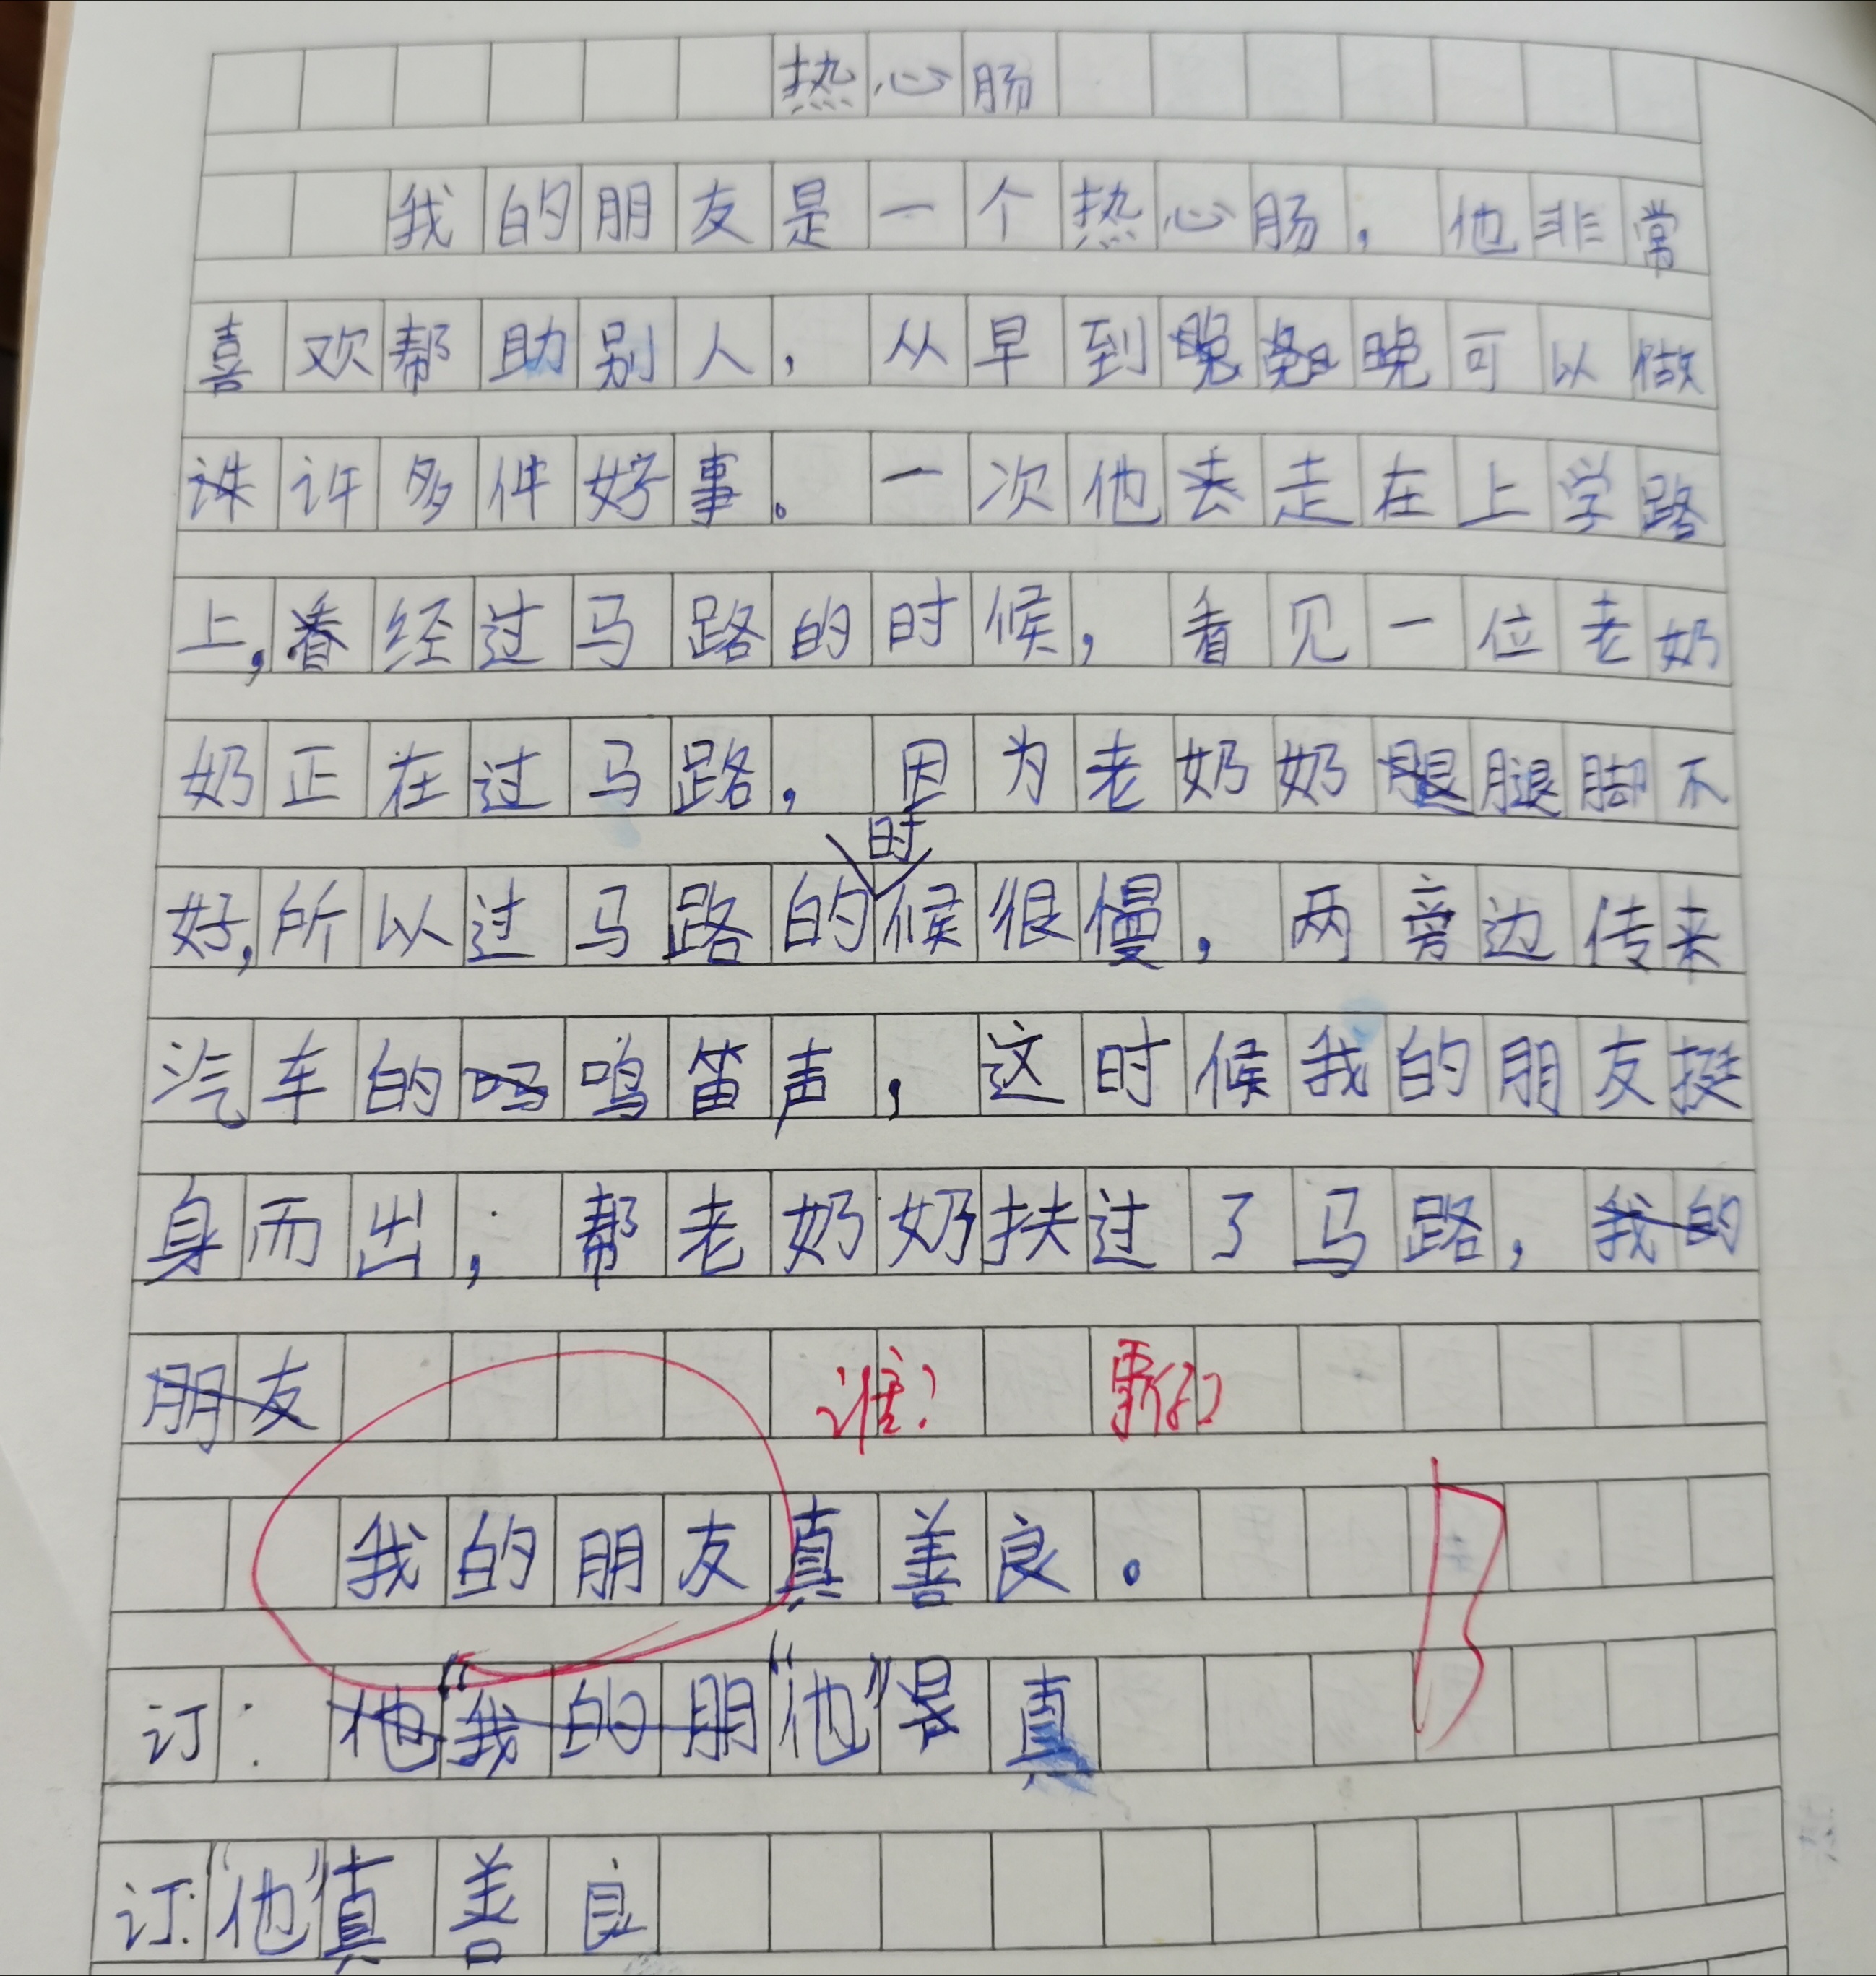 热心肠
我的朋友是一个热心肠，他非常
喜欢帮助别人，从早到晚可以做
许多件好事。一次他去走在上学路
上，经过马路的时候，看见一位老奶
奶正在过马路，因为老奶奶腿脚不
时
好，所以过马路的候很慢，两旁边传来
汽车的鸣笛声，这时候我的朋友挺
身而出，帮老奶奶扶过了马路，我的
朋友
谁？
我的朋友真善良。
订：他我的朋“他”得真
订：“他”真善良